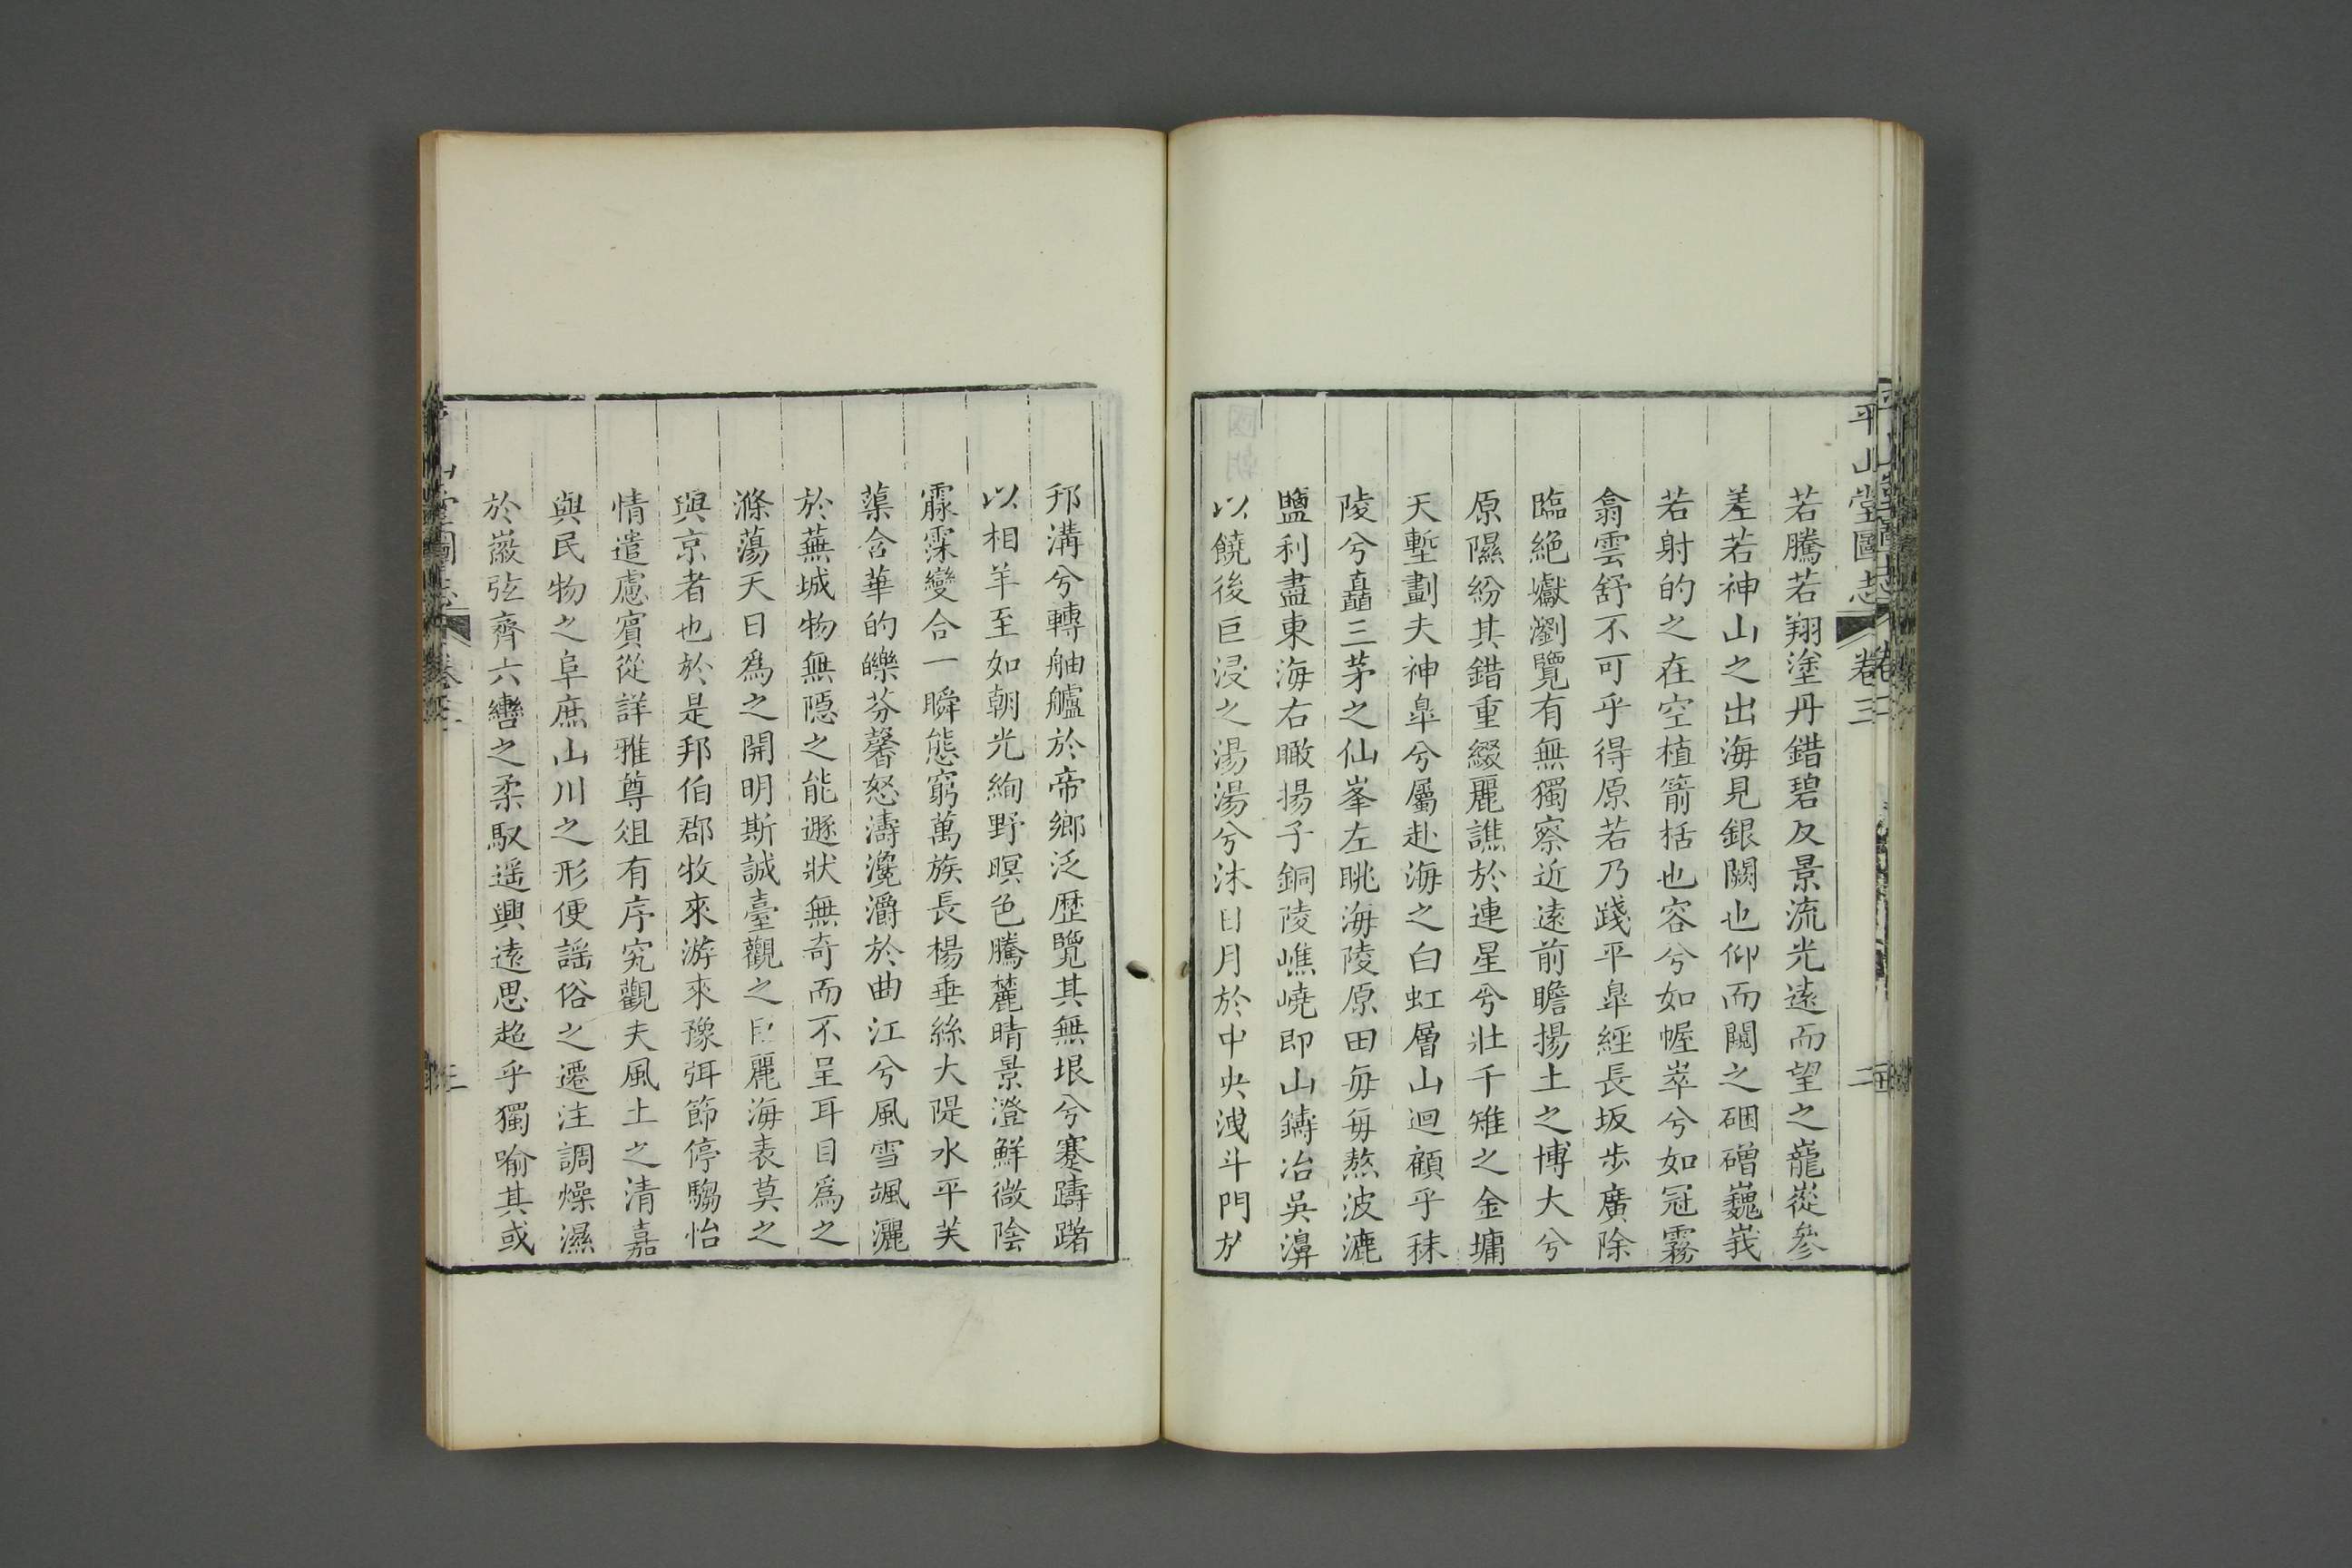 平山堂圖志 卷三 二
若騰若翔塗丹錯碧反景流光遠而望之巃嵷參
差若神山之出海見銀闕也仰而闚之硱磳巍峩
若射的之在空植箭栝也容兮如幄崒兮如冠霧
翕雲舒不可乎得原若乃踐平臯經長坂步廣除
臨絶巘瀏覽有無獨察近遠前瞻揚土之博大兮
原隰紛其錯重綴麗譙於連星兮壯千雉之金墉
天塹劃夫神臯兮屬赴海之白虹層山迴顧乎秣
陵兮矗三茅之仙峯左眺海陵原田每每熬波漉
鹽利盡東海右瞰揚子銅陵嶕嶢即山鑄冶吳濞
以饒後巨浸之湯湯兮沐日月於中央洩斗門於
邗溝兮轉舳艫於帝鄉泛歷覽其無垠兮蹇躊躇
以相羊至如朝光絢野暝色騰麓晴景澄鮮微陰
霢霂變合一瞬態窮萬族長楊垂絲大隄水平芙
蕖含華的皪芬馨怒濤瀺灂於曲江兮風雪颯灑
於蕪城物無隱之能遯狀無奇而不呈耳目爲之
滌蕩天日爲之開明斯誠臺觀之巨麗海表莫之
與京者也於是邦伯郡牧來游來豫弭節停騶怡
情遣慮賓從詳雅尊俎有序究觀夫風土之清嘉
與民物之阜庶山川之形便謡俗之遷注調燥濕
於徽弦齊六轡之柔馭遥興遠思超乎獨喻其或
山堂圖志 卷三 三